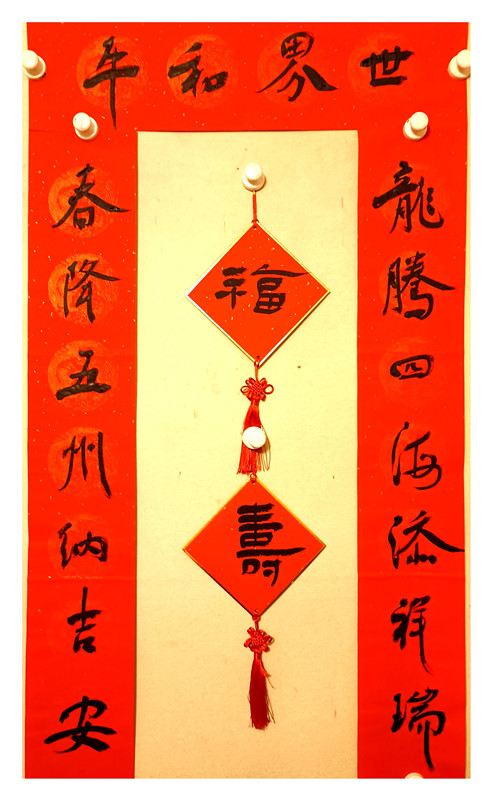 世界和平
龍騰四海添祥瑞
春降五州納吉安
福
壽